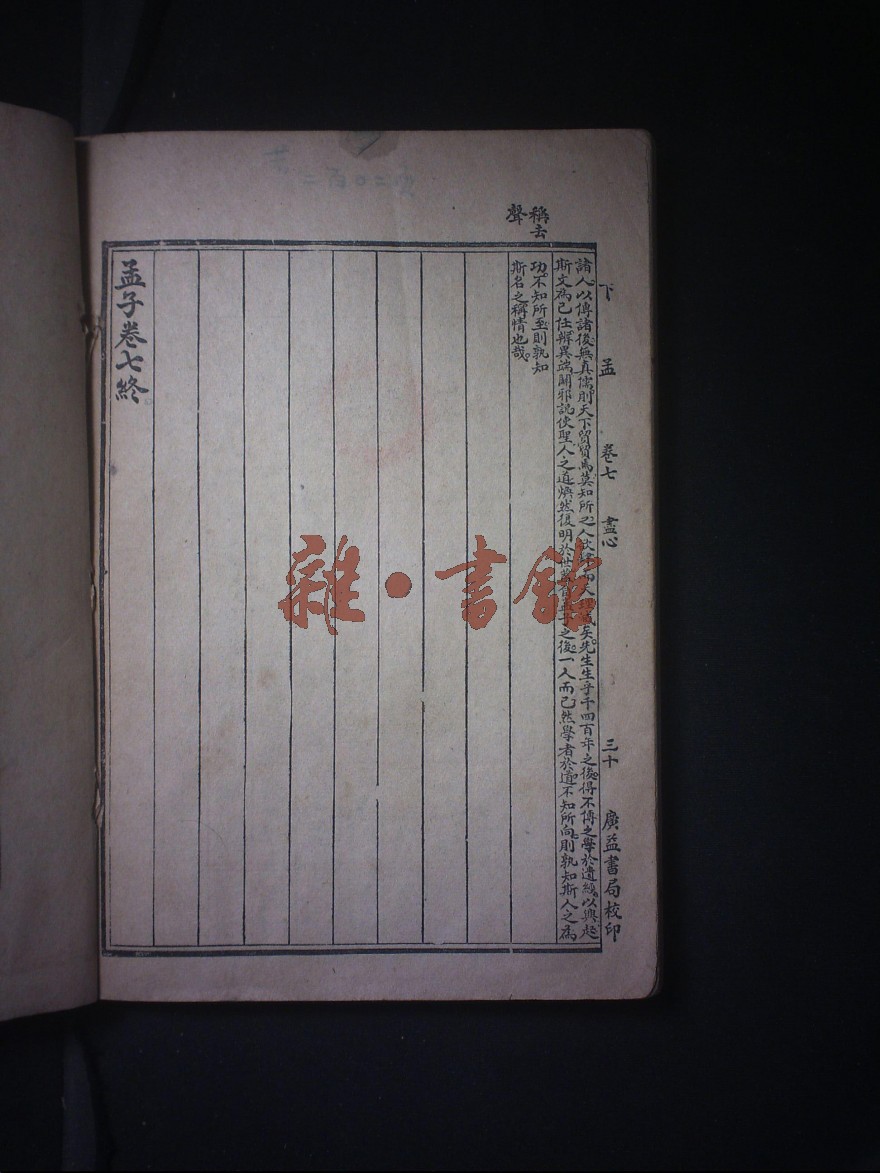 下孟 卷七 盡心 三十 廣益書局校印
稱去
聲
諸人以傳諸後無真儒則天下貿貿焉莫知所之人 矣先生生乎千四百年之後得不傳之學於遺經以興起
斯文為己任辨異端闢邪說使聖人之道煥然復明於世 之後一人而已然學者於道不知所向則孰知斯人之為
功不知所至則孰知
斯名之稱情也哉
孟子卷七終
雜·書館
二百〇二